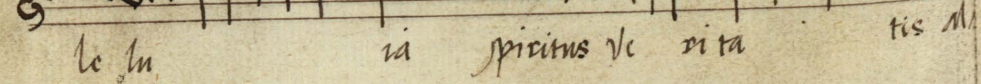 le lu ia spiritus ve ri ta tis Al